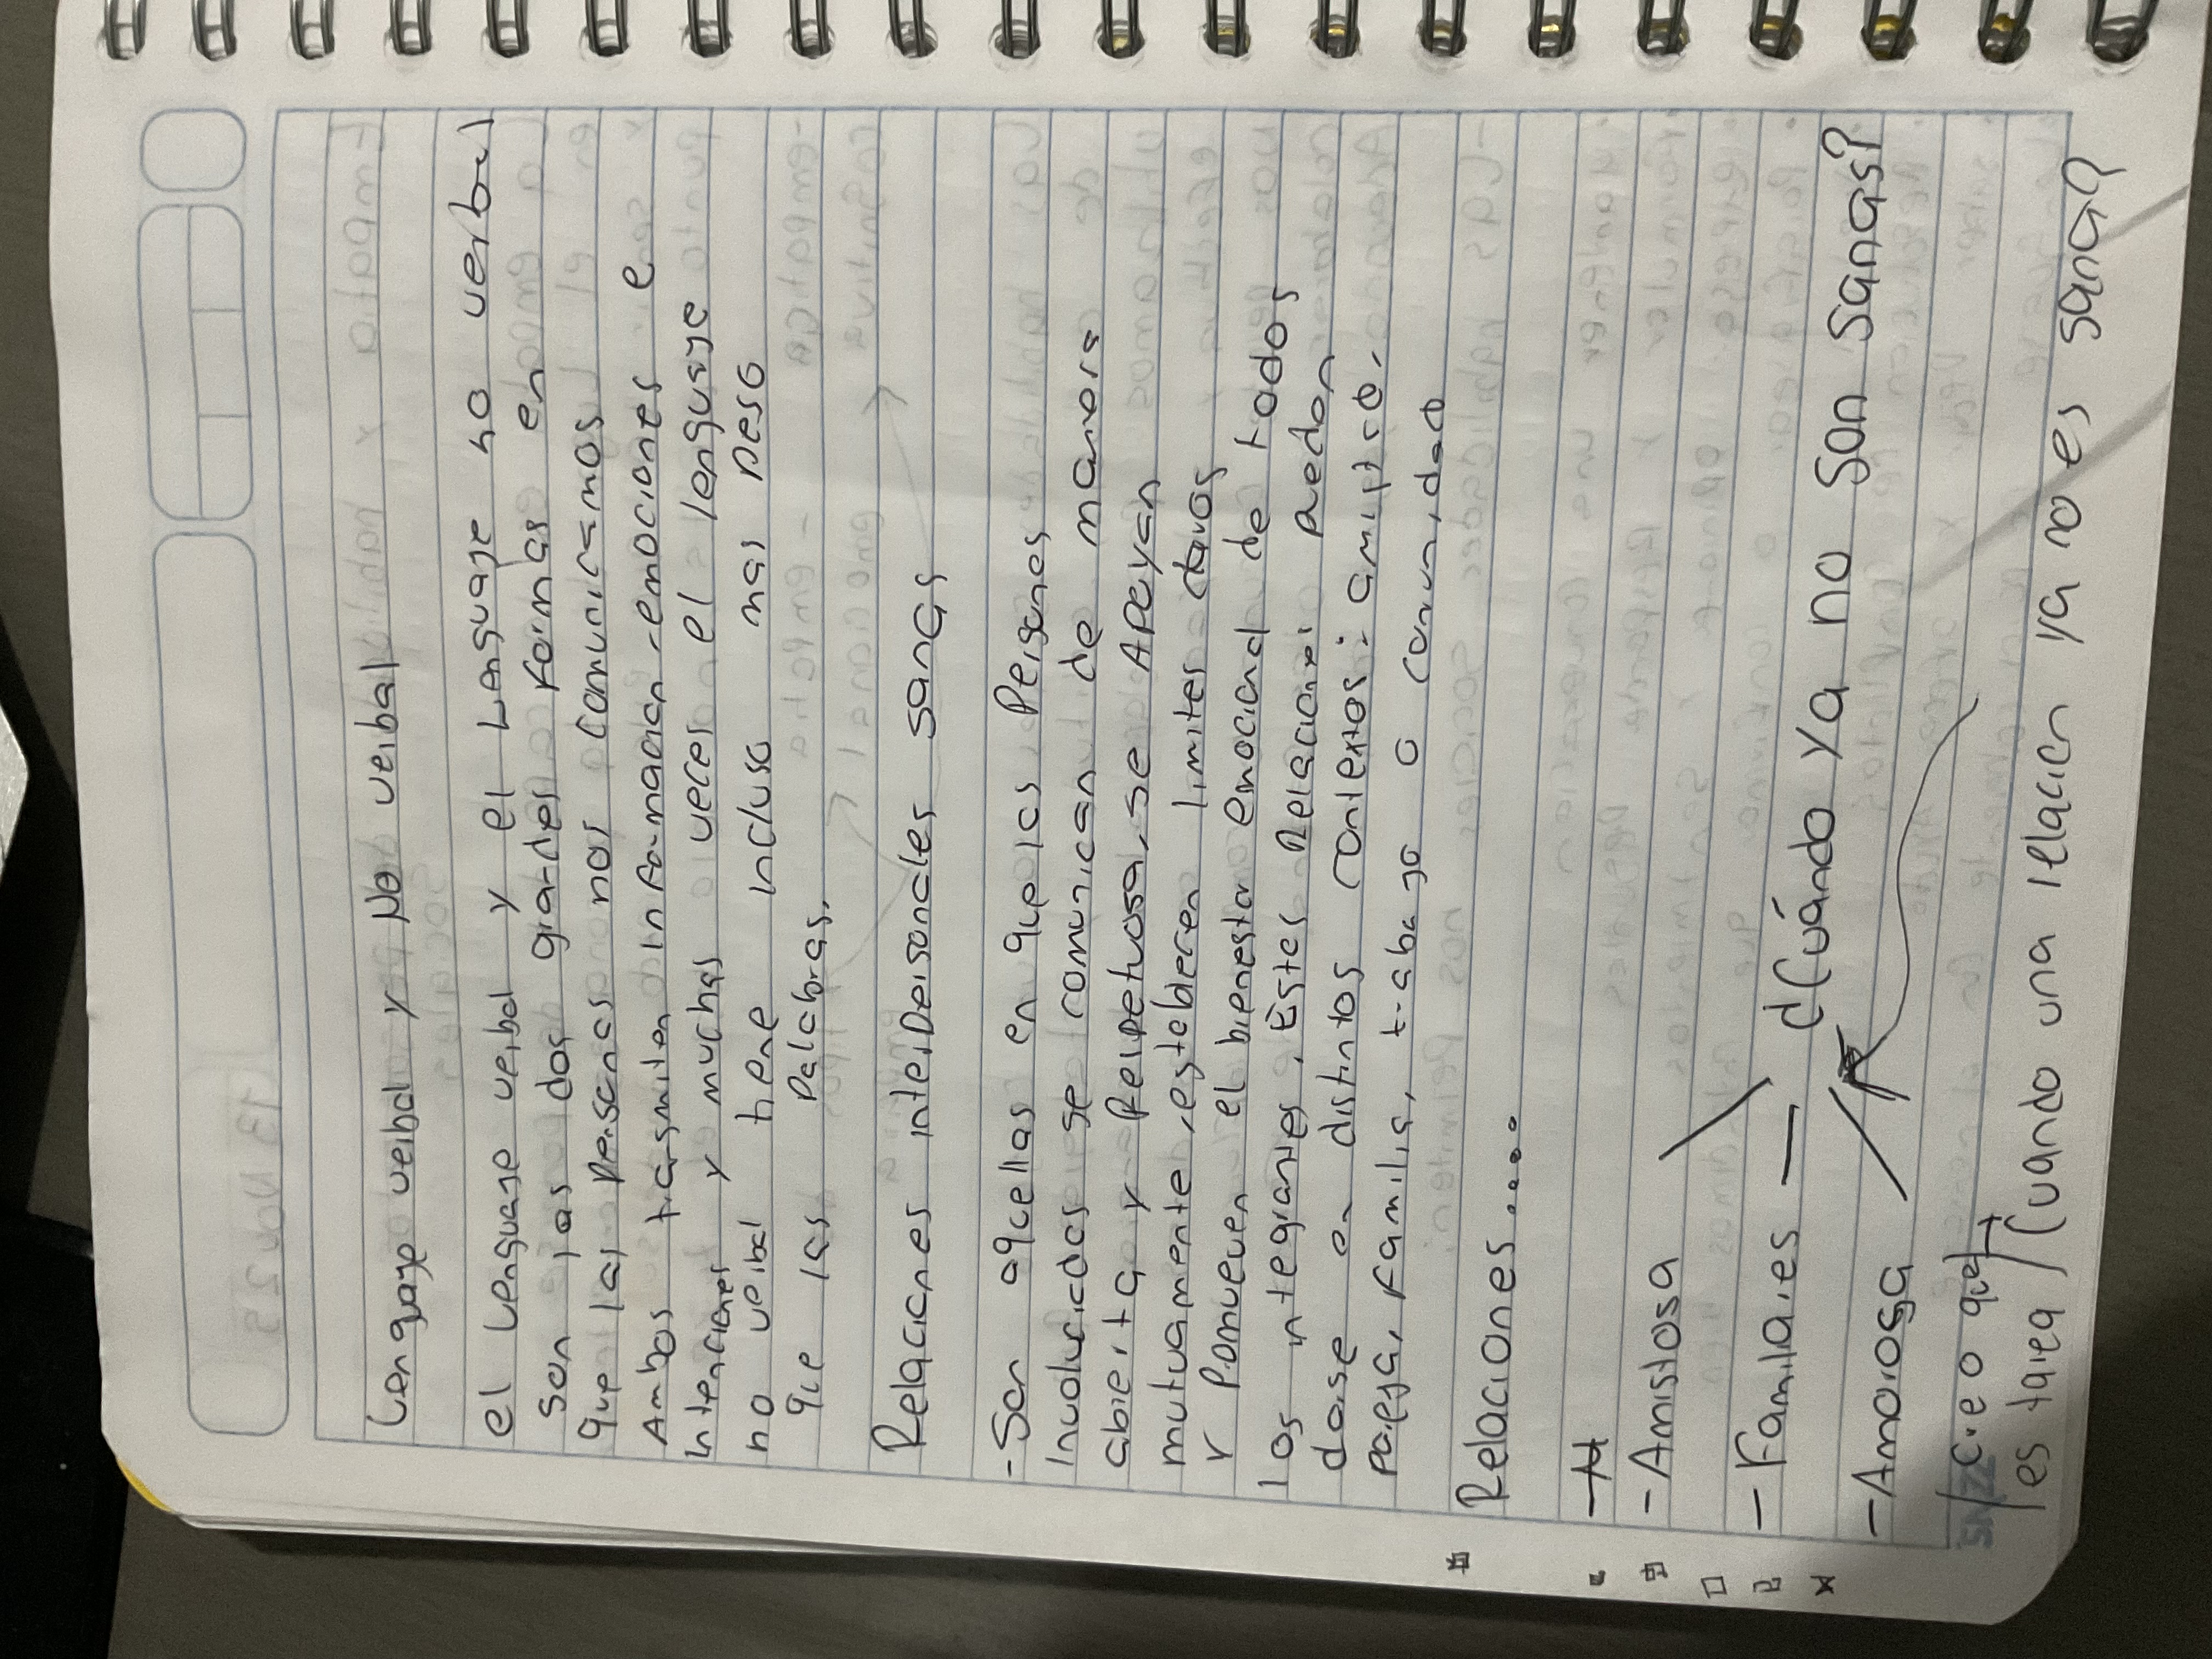 Lenguaje verbal y No verbal
el Lenguaje verbal y el Lenguaje no verbal
son las dos grandes formas en
que las personas nos comunicamos
Ambos trasmiten información, emociones e
intenciones y muchas veces el lenguaje
no verbal tiene incluso mas peso
que las palabras.
Relaciones interpersonales sanas
- Son aquellas en que las Personas
involucradas se comunican de manera
abierta y Respetuosa, se APoyan
mutuamente, establecen limites claros
y Pomueven el bienestar emocional de todos
los integrantes. Estas Relaciones pueden
darse en distintos contextos: amistad,
pareja, familia, trabajo o comunidad
Relaciones.....
- Amistosa
- Familiares — ¿Cuándo ya no son sanas?
- Amorosa
/ creo que
es tarea / Cuando una relacion ya no es sana?